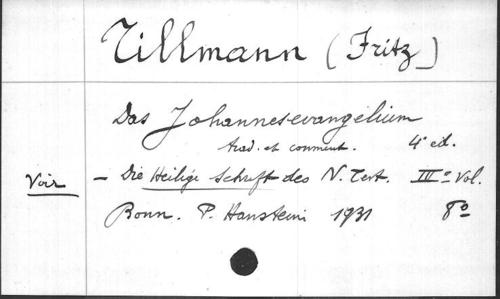 Tillmann (Fritz)
Das Johannesevangelium
trad. et comment. 4e ed.
Voir – Die Heilige Schrift des N. Test. IIIo Vol.
Bonn. P. Hanstein 1931 8o